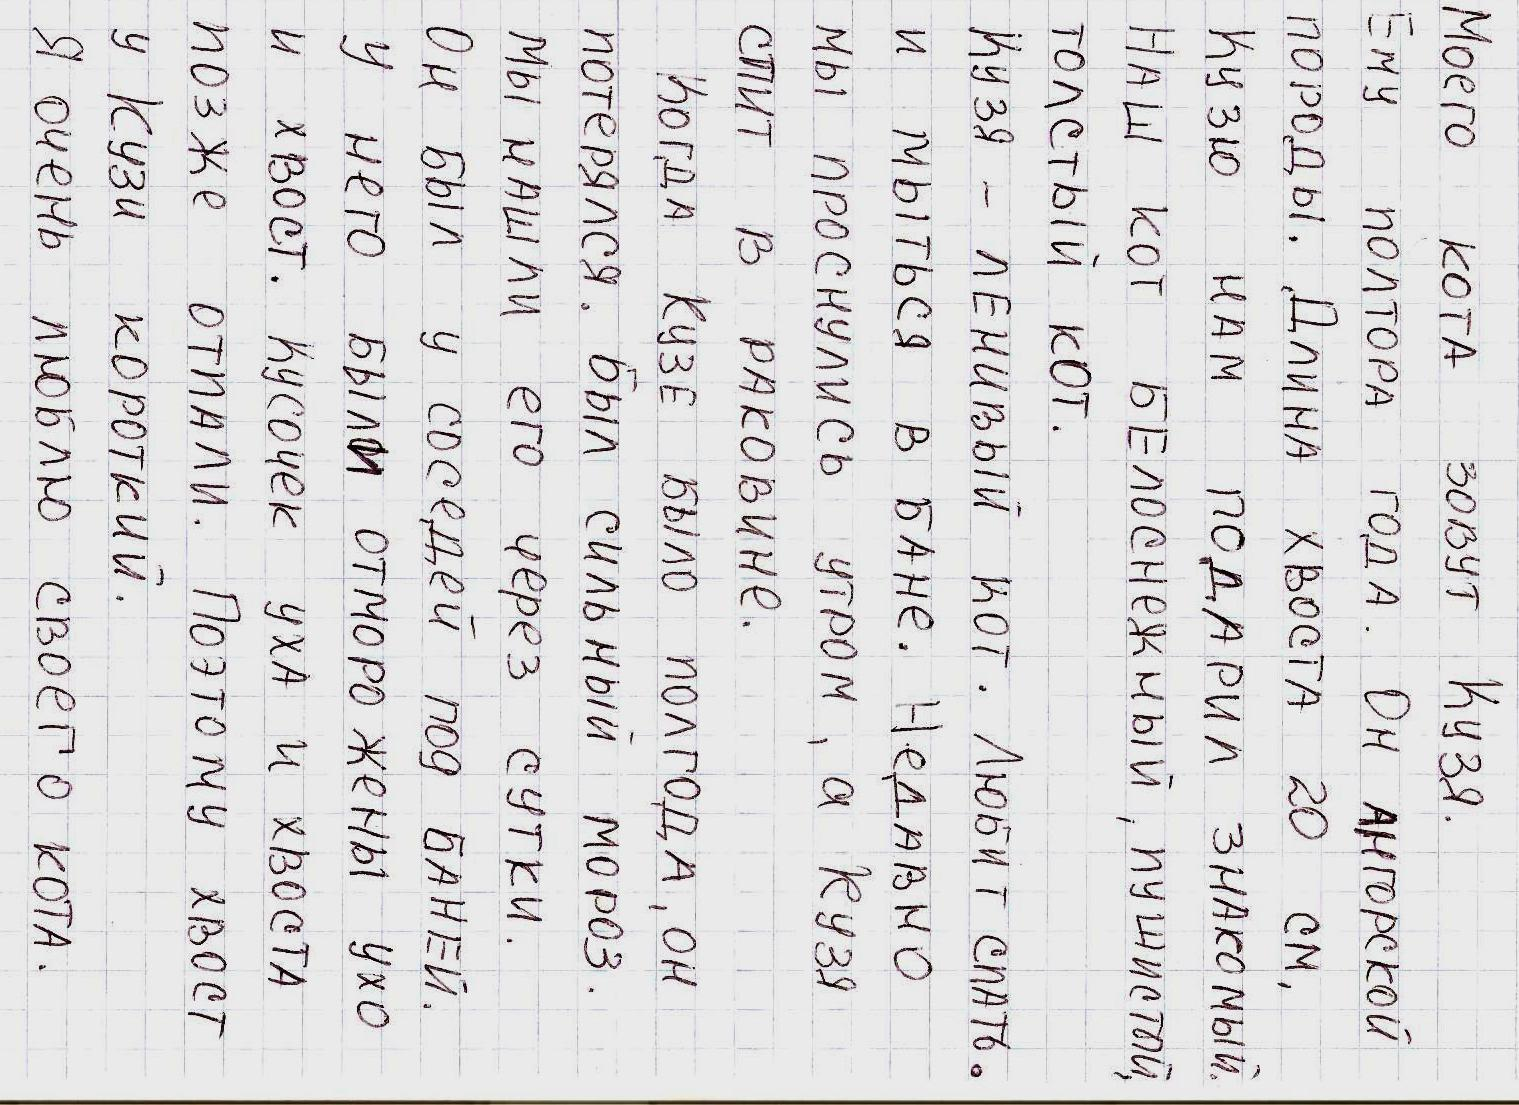 Моего кота зовут Кузя.
Ему полтора года. Он ангорской
породы. Длина хвоста 20 см.
Кузю нам подарил знакомый.
Наш кот белоснежный, пушистый,
толстый кот.
Кузя – ленивый кот. Любит спать.
и мыться в бане. Недавно
мы проснулись утром, а Кузя
спит в раковине.
Когда Кузе было полгода, он
потерялся. был сильный мороз.
мы нашли его через сутки.
Он был у соседей под баней.
у него были отморожены ухо
и хвост. Кусочек уха и хвоста
позже отпали. Поэтому хвост
у Кузи короткий.
Я очень люблю своего кота.